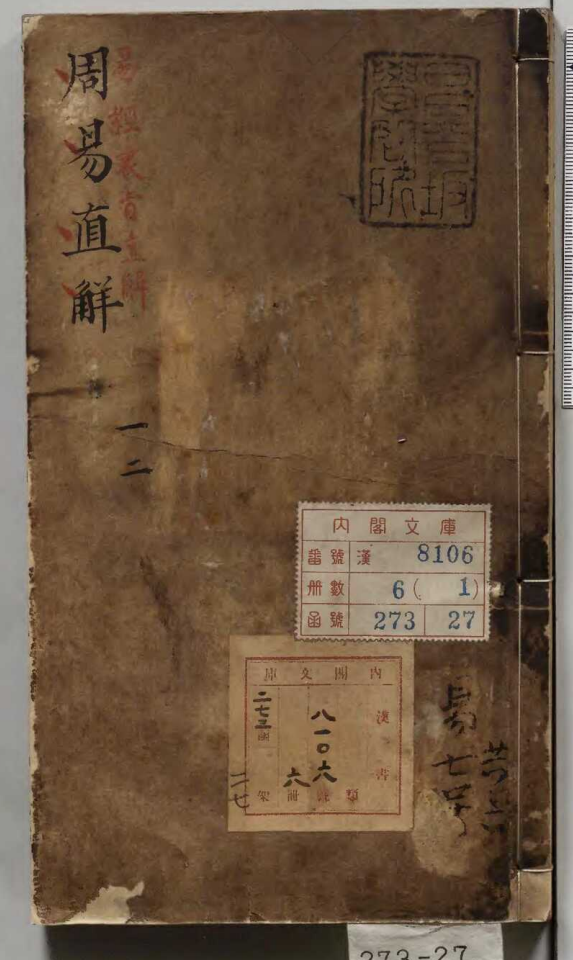 周易直觧
易經衷旨直解
一
二
昌平坂
學問所
内閣文庫
番號 漢 8106
册數 6(1)
函號 273 27
内閣文庫
漢書
八一〇六
六
二七三函
二七
類 號 冊 架
易
七号
273-27